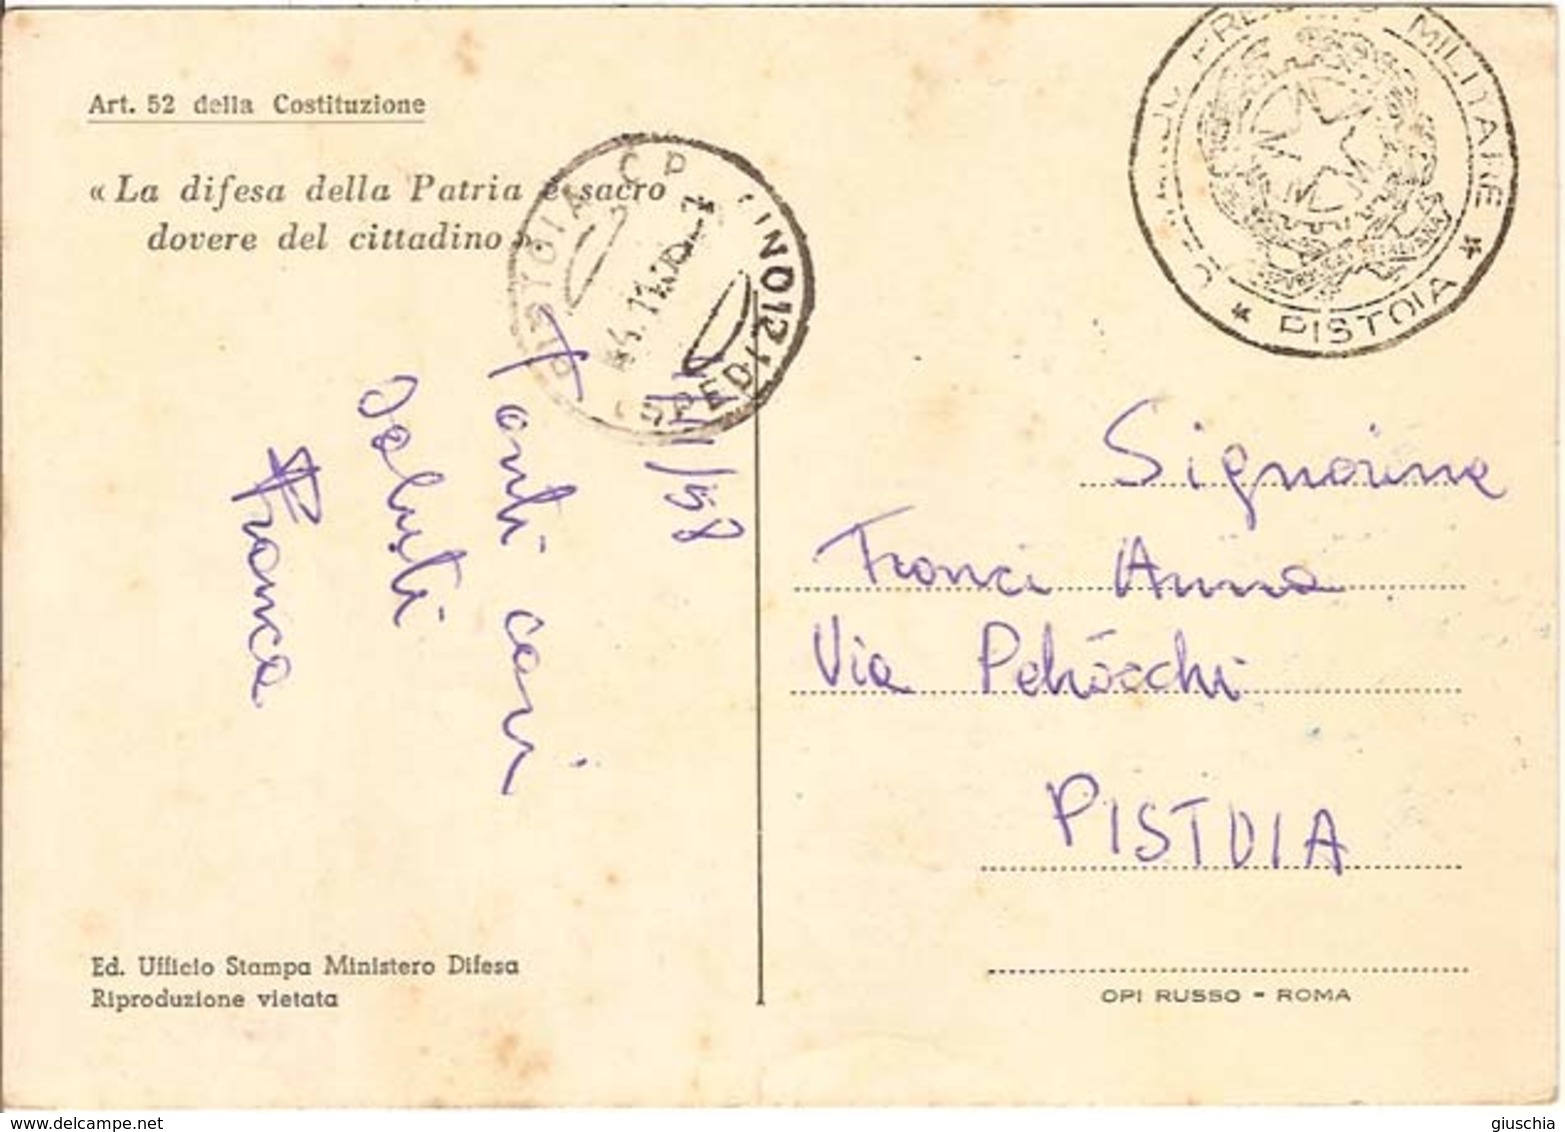 Art. 52 della Costituzione
« La difesa della Patria è sacro
dovere del cittadino »
PISTOIA C P
(SPEDIZIONI)
PRESIDIO MILITARE
* PISTOIA *
/58
Tanti cari
saluti
Franca
Signorina
Franci Anna
Via
PISTOIA
Ed. Ufficio Stampa Ministero Difesa
Riproduzione vietata
OPI RUSSO - ROMA
delcampe.net
giuschia